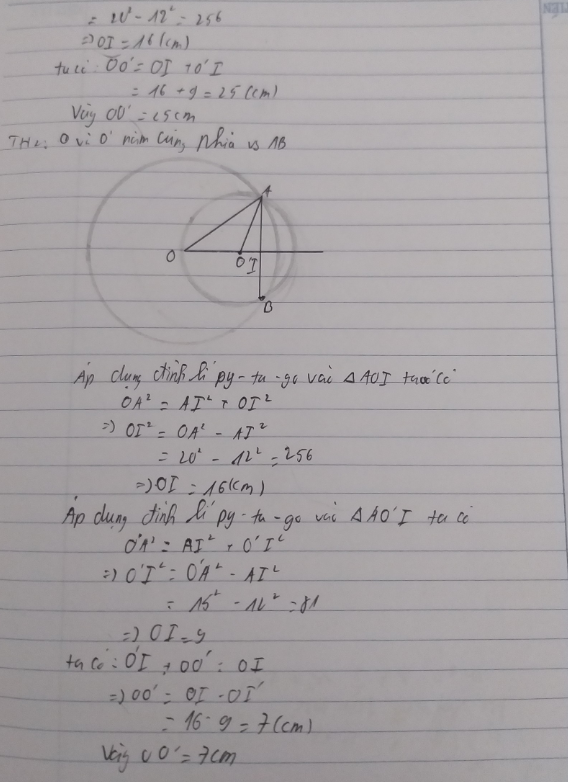 = 20² - 12² = 256
=> OI = 16 (cm)
ta có: OO' = OI + O'I
= 16 + 9 = 25 (cm)
Vậy OO' = 25cm
TH2: O và O' nằm cùng phía vs AB
A
O
O
I
B
Áp dụng định lí py-ta-go vào △AOI ta có
OA² = AI² + OI²
=> OI² = OA² - AI²
= 20² - 12² = 256
=> OI = 16 (cm)
Áp dụng định lí py-ta-go vào △AO'I ta có
O'A² = AI² + O'I²
=> O'I² = O'A² - AI²
= 15² - 12² = 81
=> OI = 9
ta có: O'I + OO' = OI
=> OO' = OI - OI'
= 16 - 9 = 7 (cm)
Vậy OO' = 7cm